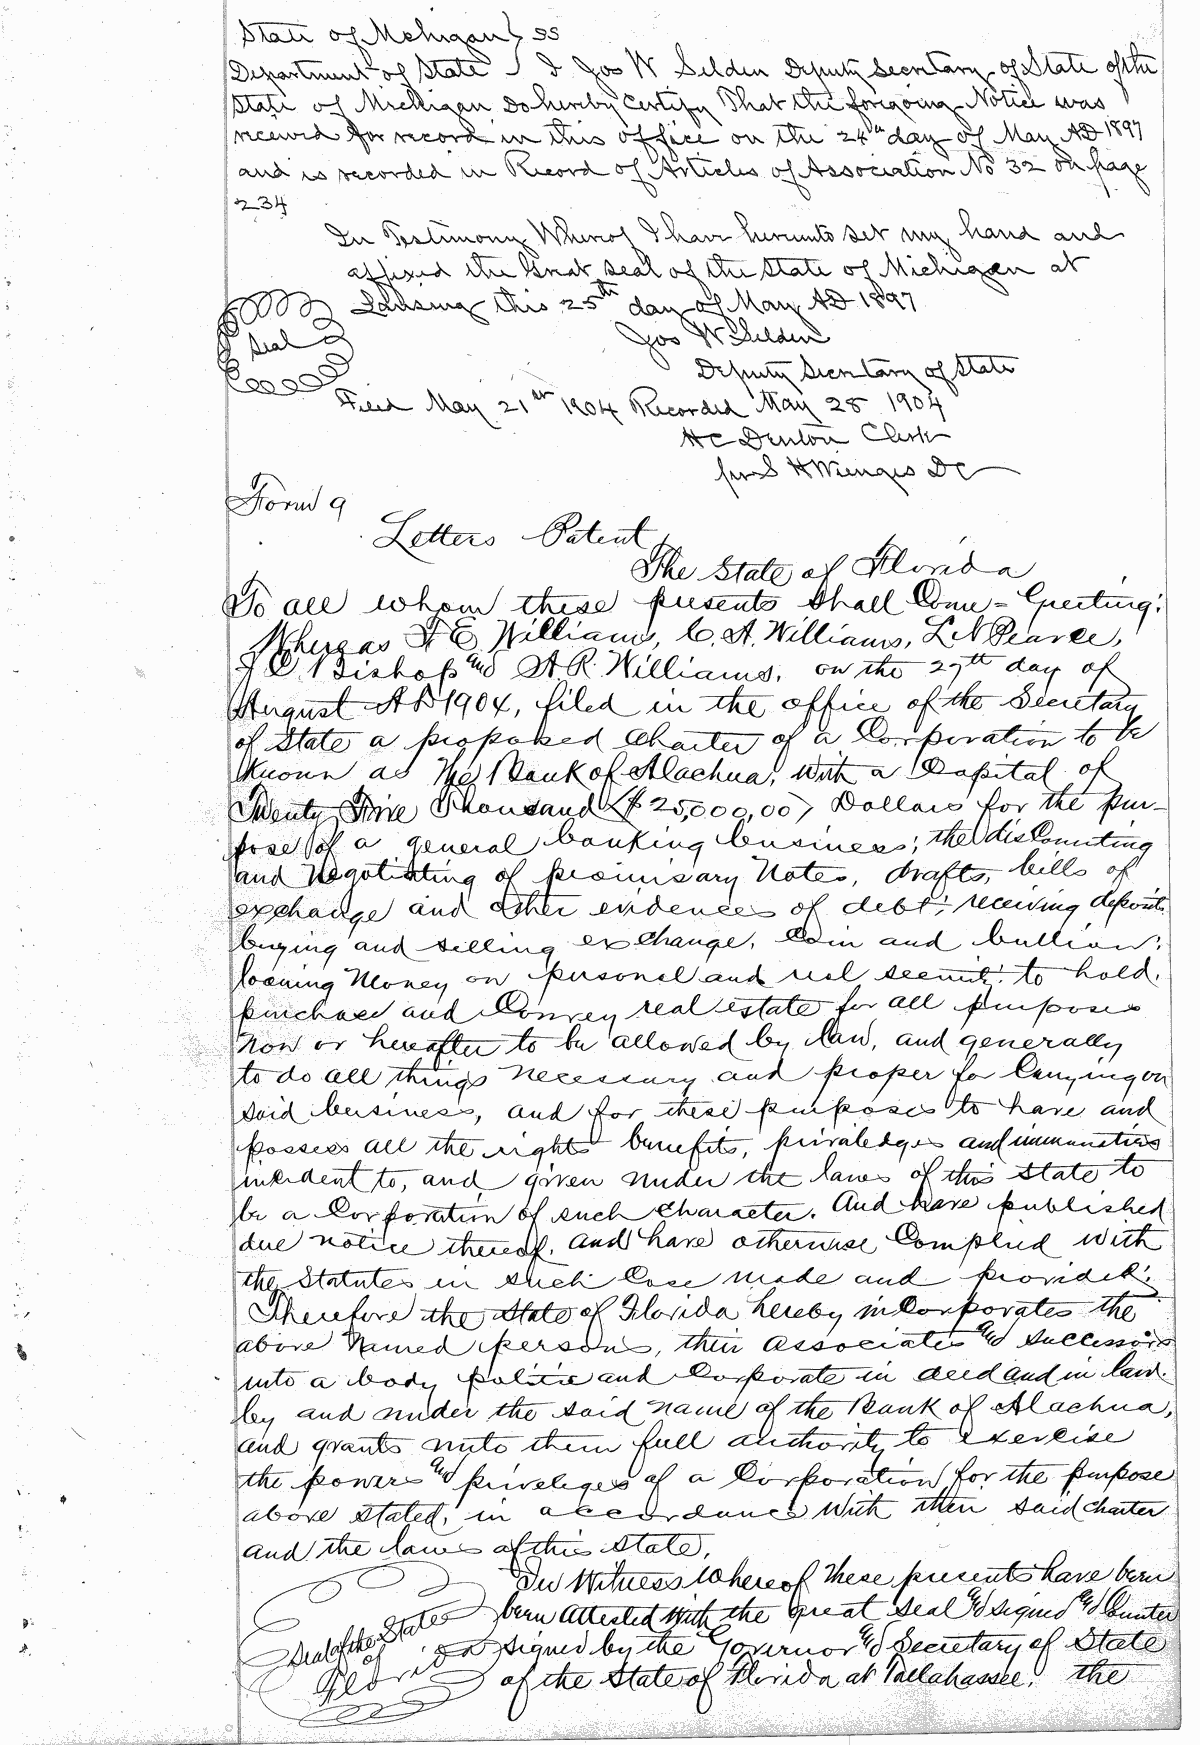 State of Michigan } SS
Department of State } I Jos W Selden Deputy Secretary of State of the
State of Michigan do hereby certify That the foregoing Notice was
received for record in this office on the 24th day of May AD 1897
and is recorded in Record of Articles of Association No 32 on page
234
In Testimony Whereof I have hereunto set my hand and
affixed the Great seal of the State of Michigan at
Lansing this 25th day of May AD 1897
Seal
Jos W Selden
Deputy Secretary of State
Filed May 21st 1904 Recorded May 28 1904
H C Denton Clerk
per S H Wienges DC
Form 9
Letters Patent
The State of Florida
To all whom these presents shall Come = Greeting:
Whereas F E Williams, C. A. Williams, L N Pearce,
J C. Bishop and A. R. Williams, on the 29th day of
August A D 1904, filed in the office of the Secretary
of State a proposed Charter of a Corporation to be
known as The Bank of Alachua, with a Capital of
Twenty Five Thousand ($25,000,00) Dollars for the pur-
pose of a general banking business; the discounting
and Negotiating of promissary Notes, drafts, bills of
exchange and other evidences of debt; receiving deposits
buying and selling exchange, Coin and bullion;
loaning Money on personal and real security; to hold,
purchase and Convey real estate for all purposes
now or hereafter to be allowed by law, and generally
to do all things necessary and proper for Carrying on
said business, and for these purposes to have and
possess all the rights benefits, priviledges and immunities
incident to, and given under the laws of this State to
be a Corporation of such character. And have published
due notice thereof, and have otherwise Complied with
the Statutes in such Case made and provided;
Therefore the State of Florida hereby incorporates the
above Named persons, their associates and successors
into a body politic and Corporate in deed and in law.
by and under the said name of the Bank of Alachua,
and grants unto them full authority to exercise
the powers and priveleges of a Corporation for the purpose
above stated, in accordance with their said charter
and the laws of this State,
In Witness Whereof These presents have been
been attested with the great seal and signed and Counter
signed by the Governor and Secretary of State
of the State of Florida at Tallahassee, the
Seal of the State
of
Florida